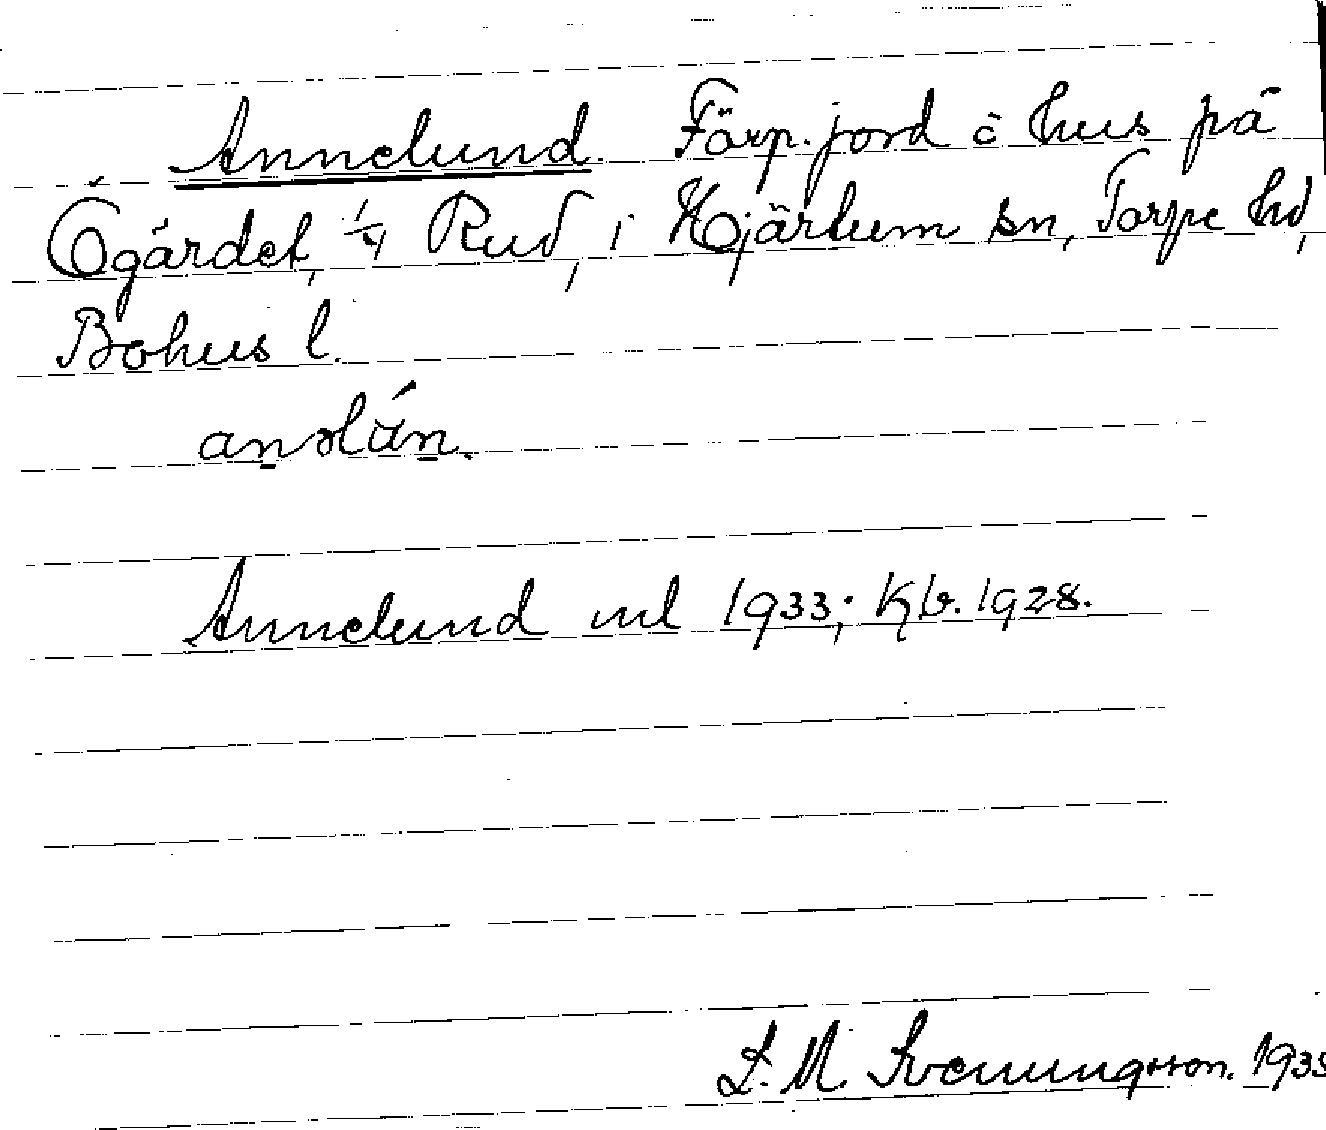 Annelund. Förp. jord o hus på
Ögårdet, 1/4 Rud, i Hjärtum sn, Torpe hd,
Bohus l.
anəlún.
Annelund ml 1933; Kb. 1928.
L. M. Svenungsson. 1933